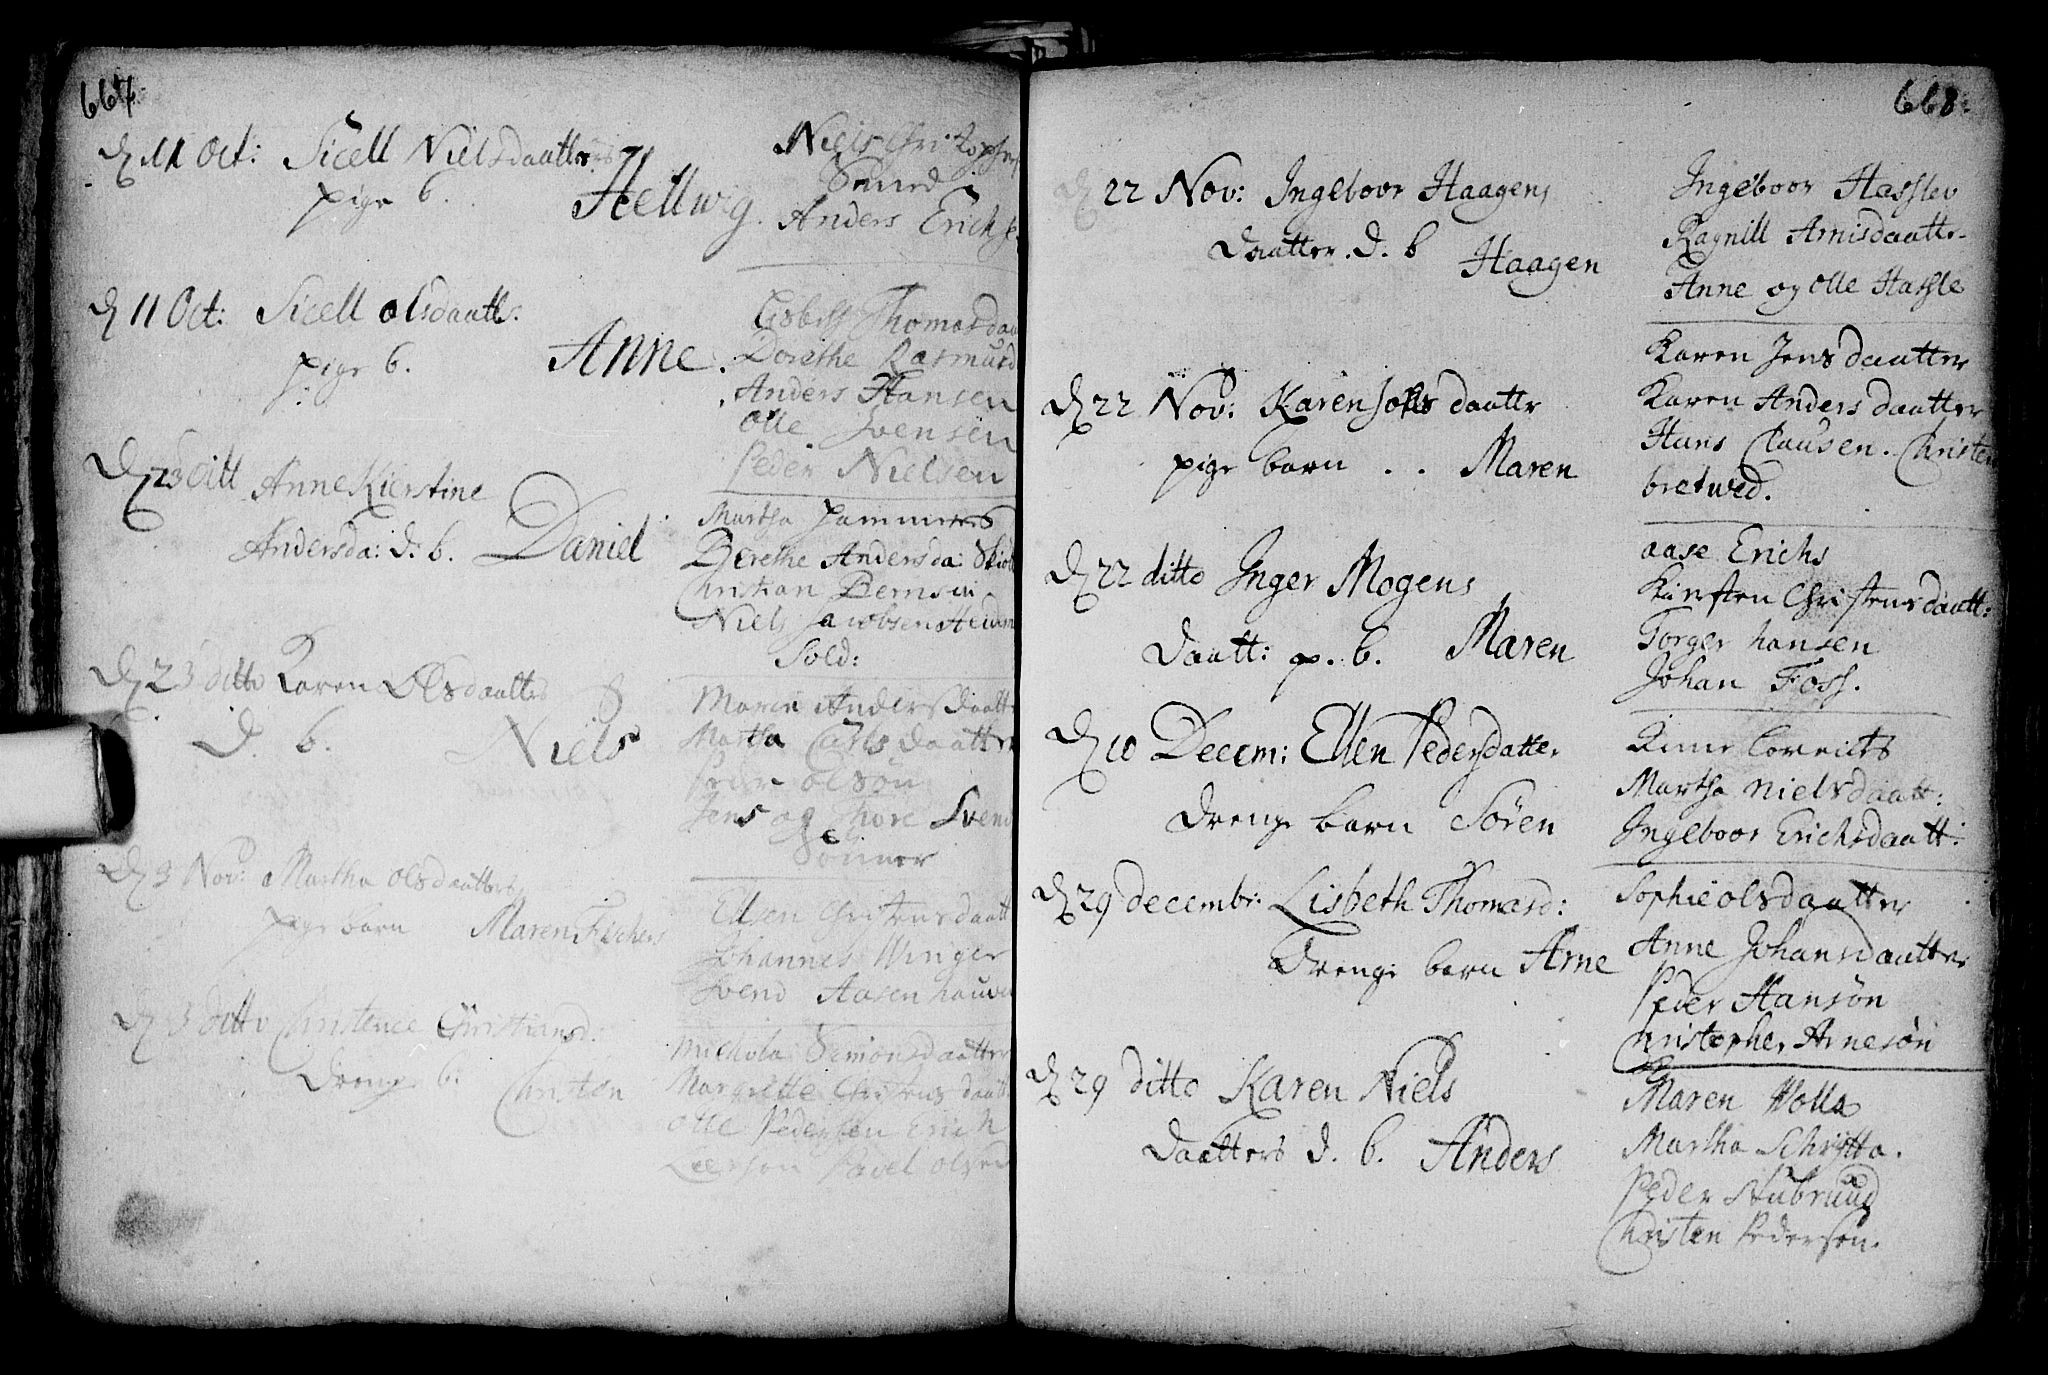 667.
D 11 Oct: Sicell Nielsdaatters
pige b. Hellwig.
Niels Christophers
Smed
Anders Erichse
D 11 Oct: Sicell olsdaatt.
pige b. Anne.
Lisbeth Thomasdaa
Dorethe Rasmusd
Anders Hansen
Olle Svensen
Peder Nielsen
D 23 ditt Anne Kierstine
Andersda: d. b. Daniel
Martha Hammers
Berethe Andersda:
Christian Bernsen
Niels Jacobsen
Sold:
D 23 ditto Karen Olsdaatter
d. b. Niels
Maren Andersdaatt
Martha Carlsdaatter
Peder Olsøn
Jens og Thore Svend
Sønner
D 3 Nov: Martha olsdaatters
pige barn Maren
Ellsen Christensdaatt
Johannes Winger
Svend Aasen
D 3 ditto Christence Christiansd:
Drenge b. Christen
Simonsdaatter
Margrette Christensdaatt
Olle Pedersen Erich
Larsen Pavel
668:
D 22 Nov: Ingeboor Haagens
daatter. d. b Haagen
Ingeboor Hasslev
Ragnill Arnisdaatte
Anne og Olle Hassle
D 22 Nov: Karen daattr
pige barn . . Maren
Karen Jensdaatter
Karen Andersdaatter
Hans Clausen. Christen
bretwed.
D 22 ditto Inger Mogens
daatt: p. b. Maren
aase Erichs
Kiersten Christensdaatt:
Torger hansen
Johan Foss.
D 10 Decem: Ellen Pedersdatter
drenge barn Sören
Martha Nielsdaatt:
Ingeboor Erichsdaatt:
D 29 decembr: Lisbeth Thomasd:
drenge barn Arne
Sophie olsdaatter
Anne Johansdaatter
Peder Hansøn
Christopher Arnesøn
D 29 ditto Karen Niels
daatters d. b. Anders
Maren Holla
Martha Schøtta.
Peder Nubruud
Christen Pedersen.